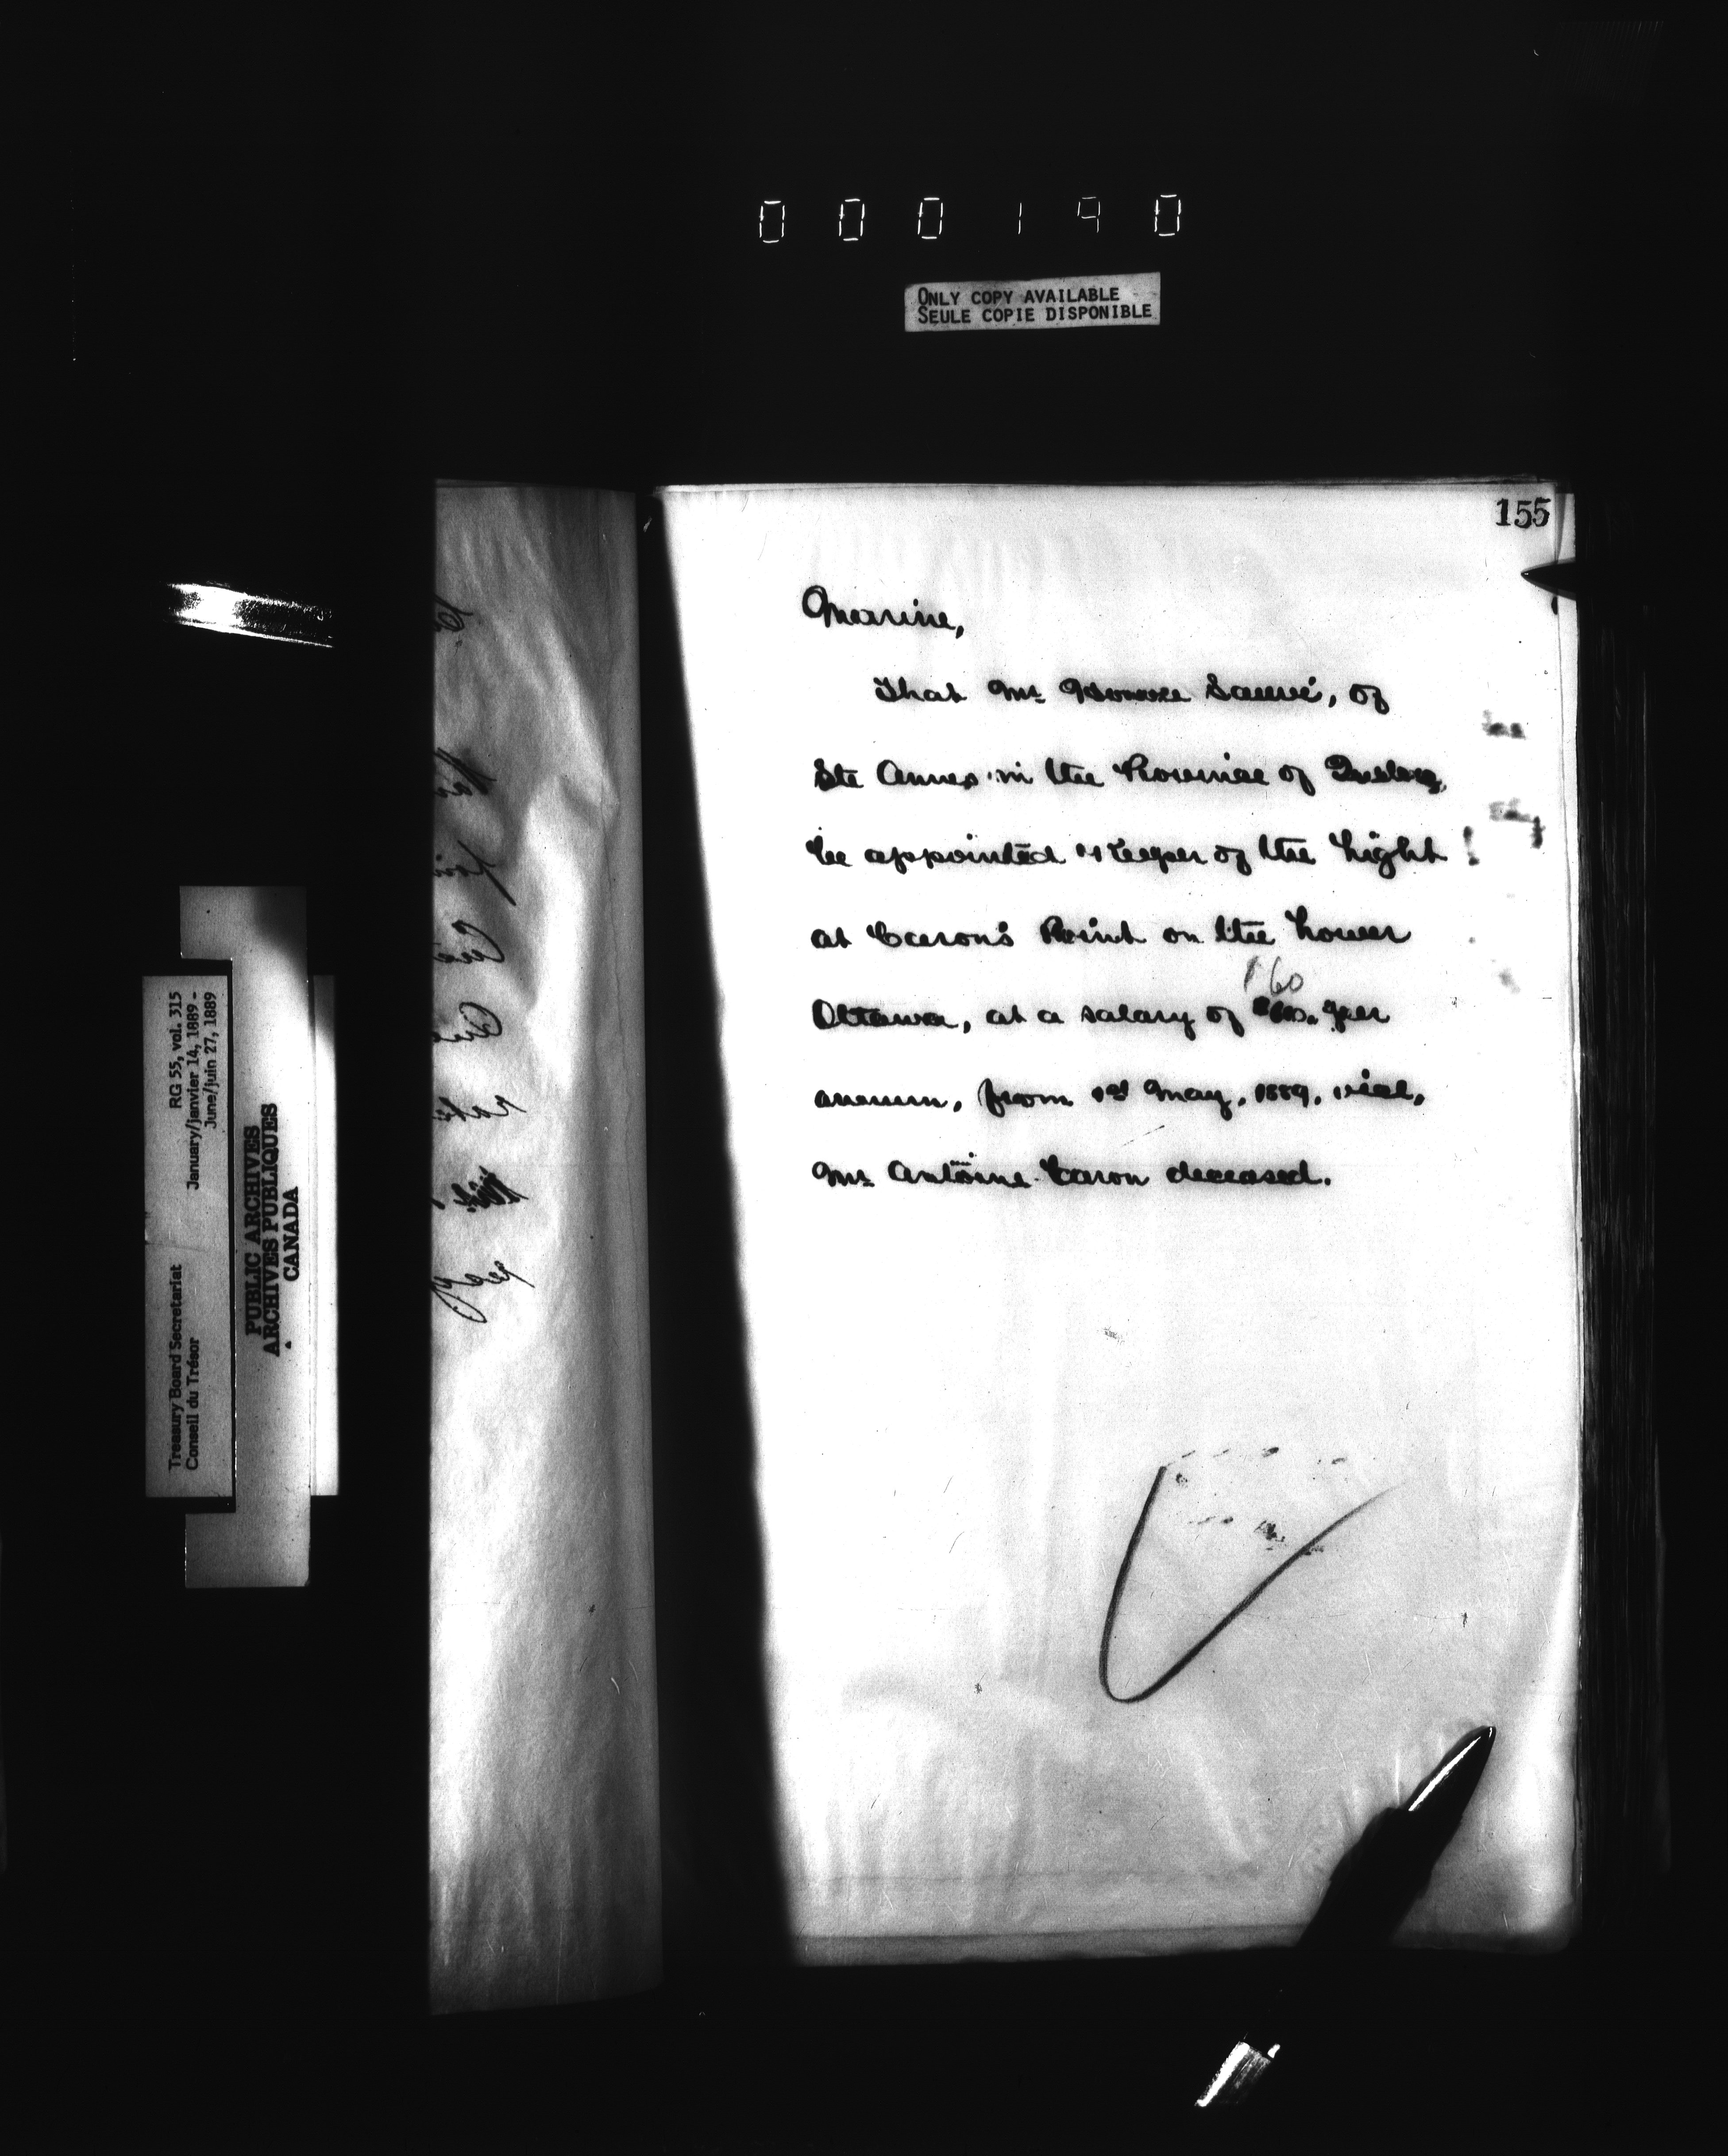 000190
ONLY COPY AVAILABLE
SEULE COPIE DISPONIBLE
155
Marine,
That Mr. Sauvé, of
Ste Annes in the Province of Quebec,
be appointed Keeper of the Light
at Caron's Point on the Lower
160
Ottawa, at a salary of per
annum, from 1st May, 1889, vice,
Mr. Antoine Caron deceased.
Treasury Board Secretariat
Conseil du Trésor
RG 55, vol. 315
January/janvier 14, 1889 -
June/juin 27, 1889
PUBLIC ARCHIVES
ARCHIVES PUBLIQUES
CANADA